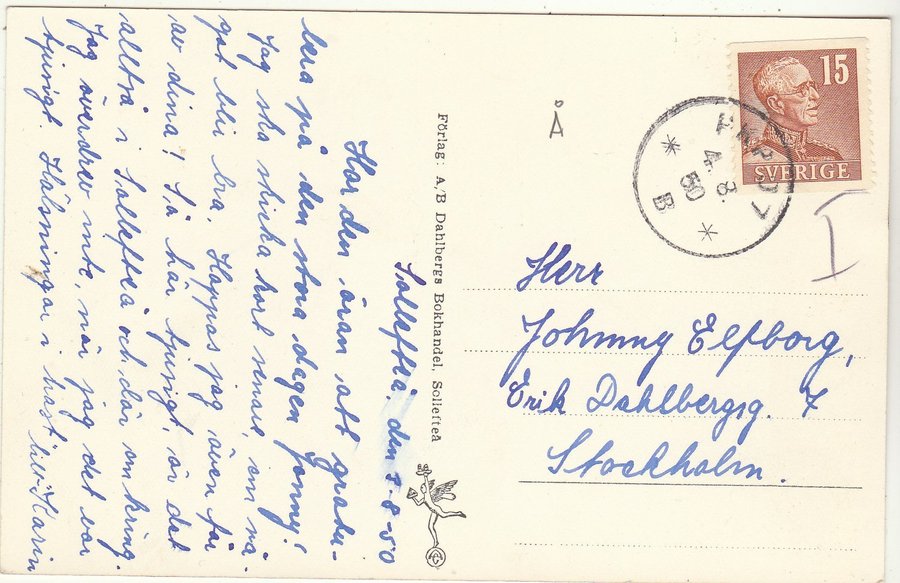 Sollefteå den 3-8-50
Har den äran att gratu-
lera på den stora dagen Jonny!
Jag ska skicka kort senare, om nå-
got blir bra. Hoppas jag även får
av dina! Så här tjusigt är det
alltså i Sollefteå och där omkring.
Jag överdrev inte, när jag det var
tjusigt. Hälsningar i hast, Karin
Förlag: A/B Dahlbergs Bokhandel, Sollefteå
Å
15
SVERIGE
PKP
4.8.
50
B
Herr
Johnny Elfborg,
Erik Dahlbergsg. 7
Stockholm.